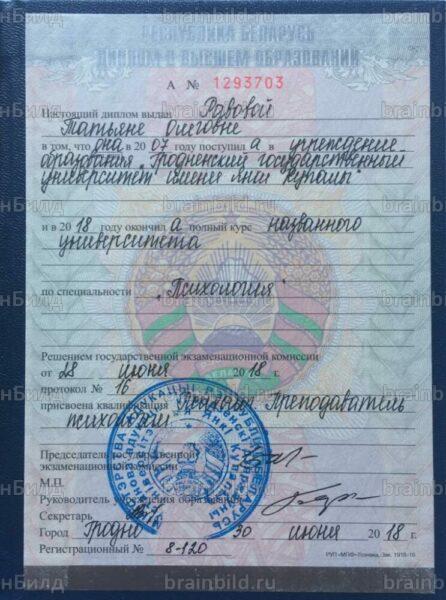 РЕСПУБЛИКА БЕЛАРУСЬ
ДИПЛОМ О ВЫСШЕМ ОБРАЗОВАНИИ
А № 1293703
Настоящий диплом выдан Рововой
Татьяне Олеговне
в том, что она в 2007 году поступил а в учреждение
образования „Гродненский государственный
университет имени Янки Купалы"
и в 2018 году окончил а полный курс названного
университета
по специальности „Психология"
Решением государственной экзаменационной комиссии
от 28 июня 2018 г.
протокол № 16
присвоена квалификация Психолог. Преподаватель
психологии
Председатель государственной
экзаменационной комиссии
М.П.
Руководитель учреждения образования
Секретарь
Город Гродно 30 июня 2018 г.
Регистрационный № 8-120
РУП «МПФ» Гознака, Зак. 1918-16
brainbild.ru